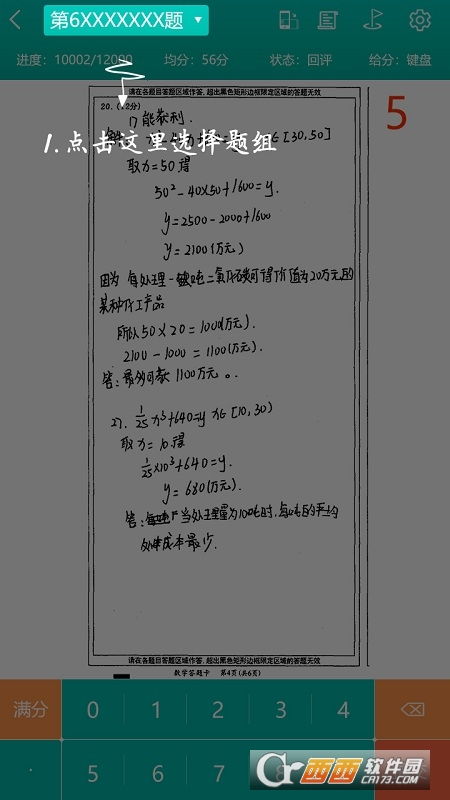 第6XXXXXXX题
进度：10002/12000 均分：56分 状态：回评 给分：键盘
请在各题目答题区域作答，超出黑色矩形边框限定区域的答题无效
5
20. (12分)
能获利.
1.点击这里选择题组
∈[30,50]
取x=50得
50²-40×50+1600=y.
y=2500-2000+1600
y=2100(万元)
因为 每处理一吨二氧化碳可得价值为20万元的
某种化工产品
所以50×20=1000(万元).
2100-1000=1100(万元).
答：最多可获1100万元。
27. 1/25 x³+640=y x∈[10,30)
取x=10得
1/25×10³+640=y.
y=680(万元).
答：当处理量为100吨时，每吨的平均
处理成本最少.
请在各题目答题区域作答，超出黑色矩形边框限定区域的答题无效
数学答题卡 第4页(共6页)
满分 0 1 2 3 4
. 5 6 7 8
西西软件园
CR173.COM